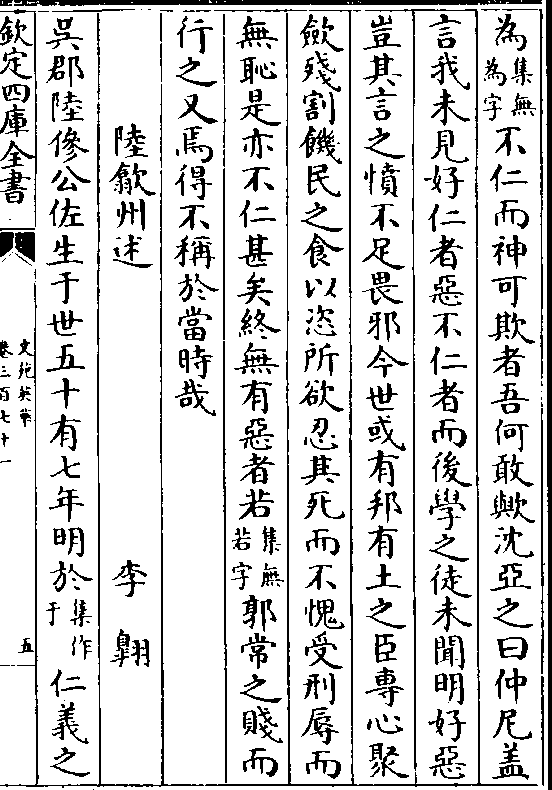 為集無為字不仁而神可欺者吾何敢歟沈亞之曰仲尼盖
言我未見好仁者惡不仁者而後學之徒未聞明好惡
豈其言之憤不足畏邪今世或有邦有土之臣專心聚
斂殘割饑民之食以恣所欲忍其死而不愧受刑辱而
無恥是亦不仁甚矣終無有惡者若集無若字郭常之賤而
行之又焉得不稱於當時哉
陸歙州述 李翺
吳郡陸傪公佐生于世五十有七年明於集作于仁義之
欽定四庫全書
文苑英華
卷三百七十一
五